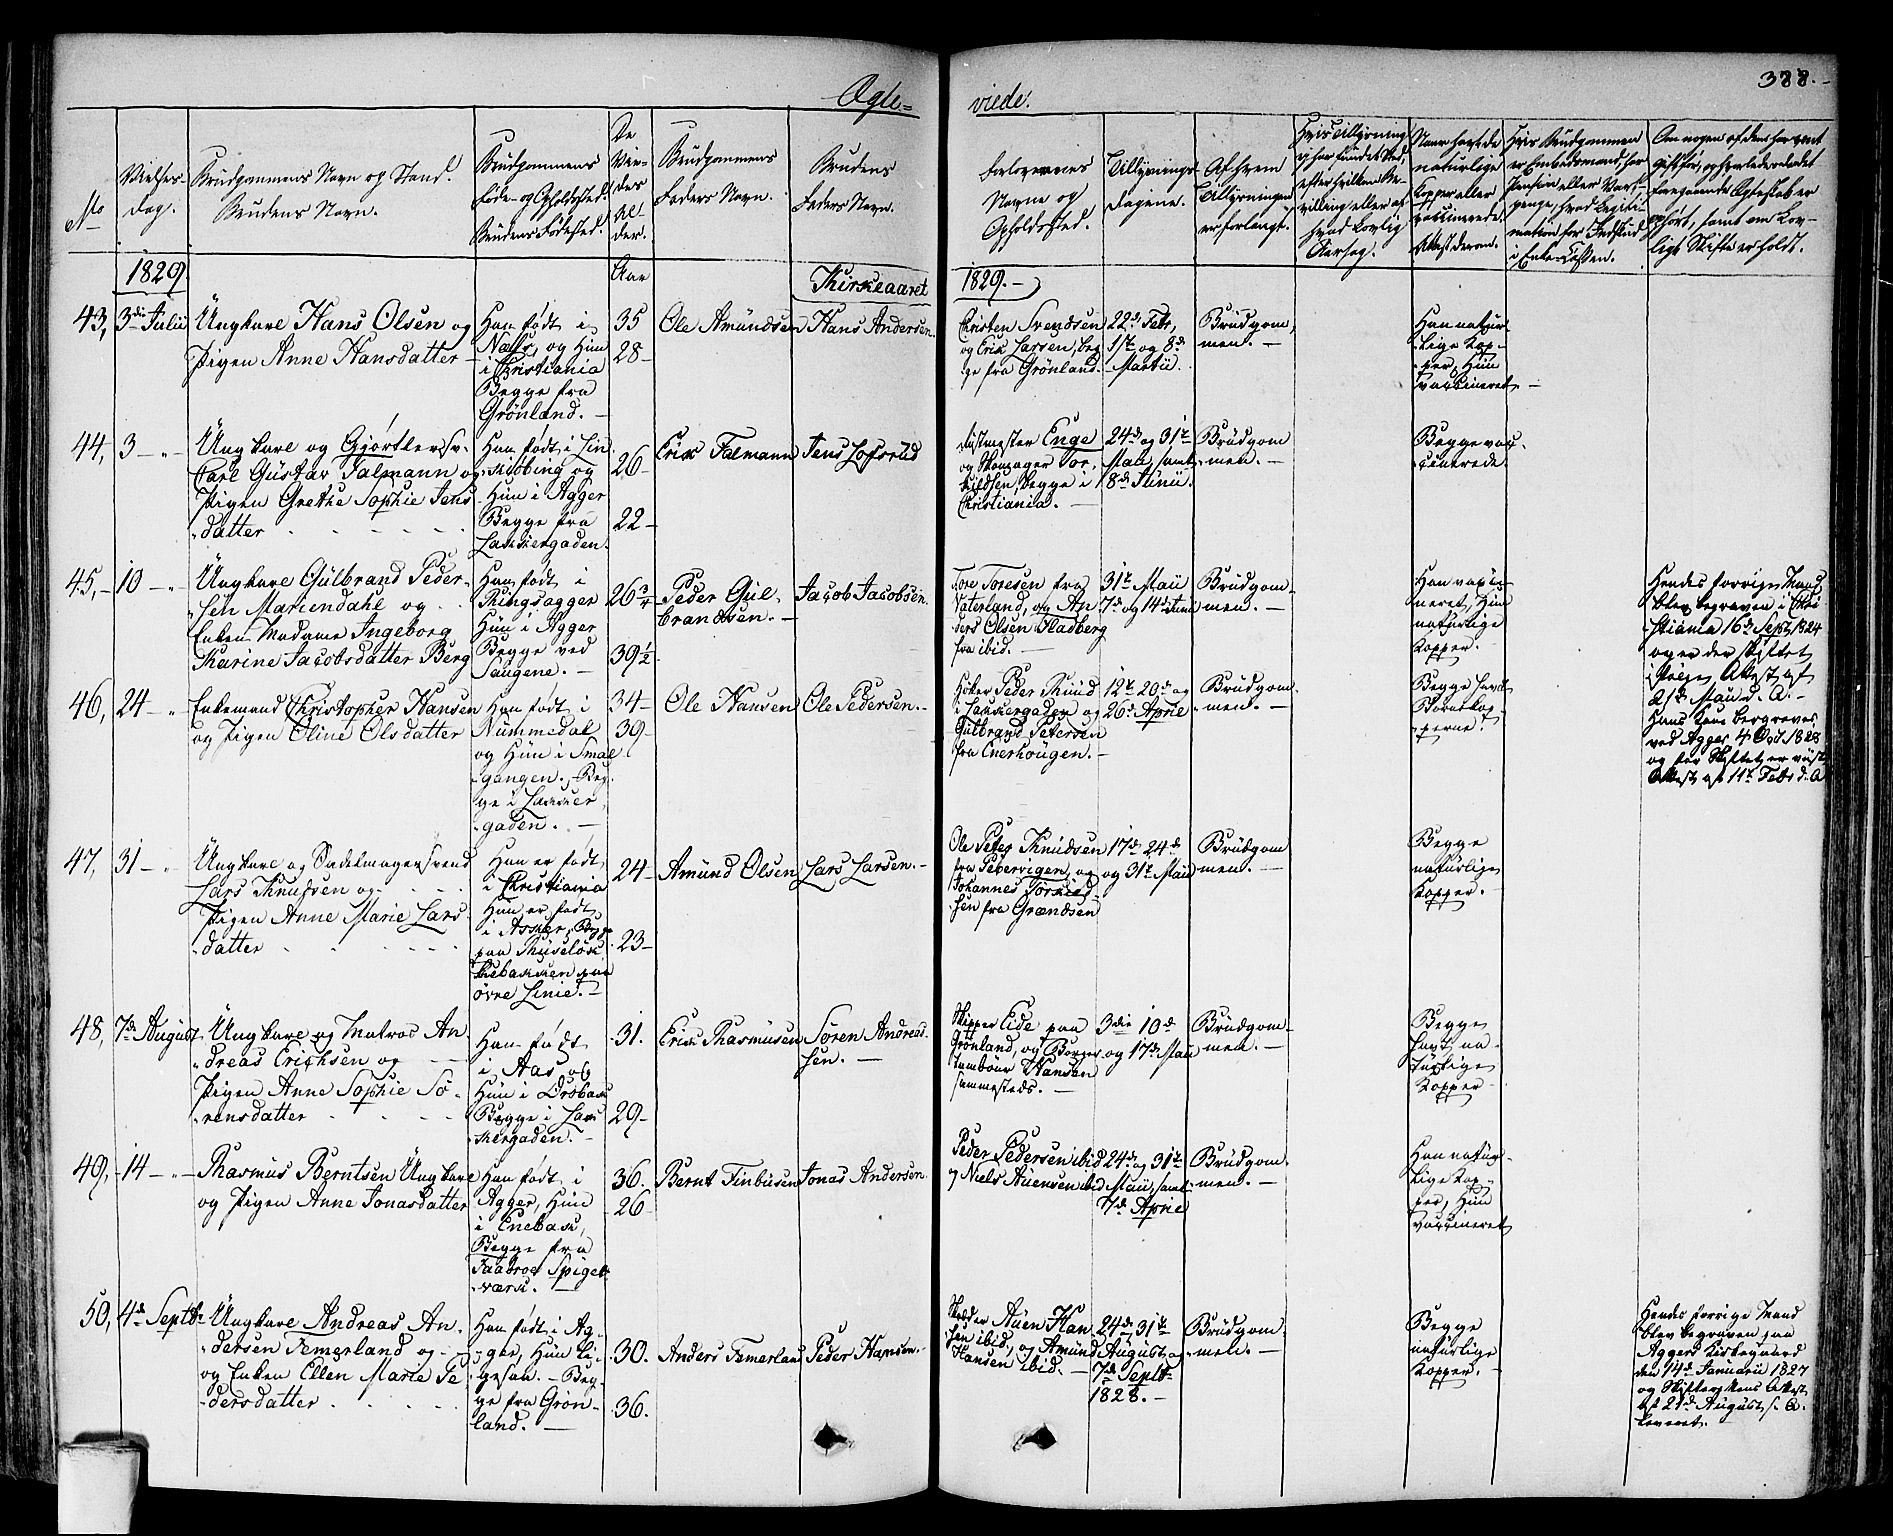 Ægte-
viede.
388.
No
Vielses-
dag.
Brudgommens Navn og Stand.
Brudens Navn.
Brudgommens
Føde- og Opholdssted.
Brudens Fødested.
De
Vie-
des
Al-
der.
Brudgommens
Faders Navn.
Brudens
Faders Navn.
Forlovernes
Navne og
Opholdssted.
Tillysnings-
dagene.
Af hvem
Tillysningen
er forlangt.
1829
Aar
Kirkeaaret
1829.-
43, 3die Julii
Ungkarl Hans Olsen og
Pigen Anne Hansdatter
Han født i
Næss, og Hun
i Christiania
Begge fra
Grönland. -
35
28-
Ole Amundsen
Hans Andersen.
Christen Svendsen
og Erik Larsen, beg
ge fra Grönland.
22d Febr,
1te og 8de
Martii.
Brudgom-
men. -
Han natur-
lige Kop-
per, Hun
vaccineret. -
44, 3 - "
Ungkarl og Gjørtlersv.
Carl Gustav Falmann og
Pigen Grethe Sophie Jens
datter
Han født i Lin-
kiöbing og
Hun i Agger
Begge fra
Lakkergaden.
26-
22-
Erik Falmann
Jens Lofsrud
Enge
og Skomager Tor-
kildsen, begge i
Christiania. -
24de og 31te
Maii, samt
8de Junii.
Brudgom
men. -
Begge vac-
cinerede.
45, - 10 - "
Ungkarl Gulbrand Peder-
sen Mariendahl og
Enken Madame Ingeborg
Karine Jacobsdatter Berg
Han født i
Ringsagger
Hun i Agger
Begge ved
Saugene. -
26 3/4
39 1/2
Peder Gul-
brandsen. -
Jacob Jacobsen.
Tore Toresen fra
Vaterland, og An
ders Olsen Fladberg
fra ibid. -
31te Maii
7de og 14de Junii
Brudgom-
men. -
Han vacci-
neret, Hun
naturlige
Kopper. -
Hendes forrige Mand
blev begraven i Chri-
stiania 16de Sept 1824
og er der skiftet
ifølge Attest af
21de Maii d. A. -
46, 24 - "
Enkemand Christopher Hansen
og Pigen Oline Olsdatter
Han født i
Nummedal
og Hun i Smal
gangen. Beg-
ge i Lakker-
gaden. -
34-
39-
Ole Hansen
Ole Pedersen. -
Høker Peder Ruud
i Lakkergaden og
Gulbrand Petersen
fra Enerhougen. -
12te 20de og
26de April
Brudgom-
men. -
Begge havt
Børnekop-
perne.
Hans Kone begraves
ved Agger 4 Oct 1828
og for Skiftet er viist
Attest af 11te Febr d. A.
47, 31 - "
Ungkarl og Sadelmagersvend
Lars Knudsen og
Pigen Anne Marie Lars-
datter
Han er født
i Christiania
Hun er født
i Asker, Begge
paa Ruseløk-
kebakken paa
övre Linie. -
24-
23-
Amund Olsen
Lars Larsen. -
Ole Peter Knudsen
fra Pebervigen, og
Johannes Torkild-
sen fra Grændsen
17de 24de
og 31te Maii
Brudgom
men. -
Begge
naturlige
Kopper. -
48, 7de August
Ungkarl og Matros An-
dreas Erichsen og
Pigen Anne Sophie Sö-
rensdatter
Han født
i Aas og
Hun i Dröbak
Begge i Lak-
kergaden. -
31.
29-
Erik Rasmusen
Sören Andreas-
sen. -
Skipper Eide paa
Grönland, og Borger
tambour Hansen
sammesteds. -
3die 10de
og 17de Maii
Brudgom-
men. -
Begge
havt na-
turlige
Kopper -
49, - 14 - "
Rasmus Berntsen Ungkarl
og Pigen Anne Jonasdatter
Han født i
Agger, Hun
i Enebak,
Begge fra
Faabroe Spiger-
værk. -
36.
26
Bernt Finbusen
Jonas Andersen
Peder Pedersen ibid
og Niels Auensen ibid
24de og 31te
Maii, samt
7de April
Brudgom-
men. -
Han natur-
lige Kop-
per, Hun
vaccineret
50, 4de Septbr
Ungkarl Andreas An-
dersen Femerland og
og Enken Ellen Marie Pe
dersdatter
Han født i Ag-
ger, Hun li-
gesaa. - Beg-
ge fra Grön-
land. -
30.
36.
Anders Femerland
Peder Hansen. -
Auen Han
sen ibid, og Amund
Hansen ibid. -
24de 31te
August og
7de Septbr
1828. -
Brudgom-
men. -
Begge
naturlige
Kopper. -
Hendes forrige Mand
blev begraven paa
Aggers Kirkegaard
den 14de Januarii 1827
og Skifterettens Attest
af 21de August s. A.
leveret.